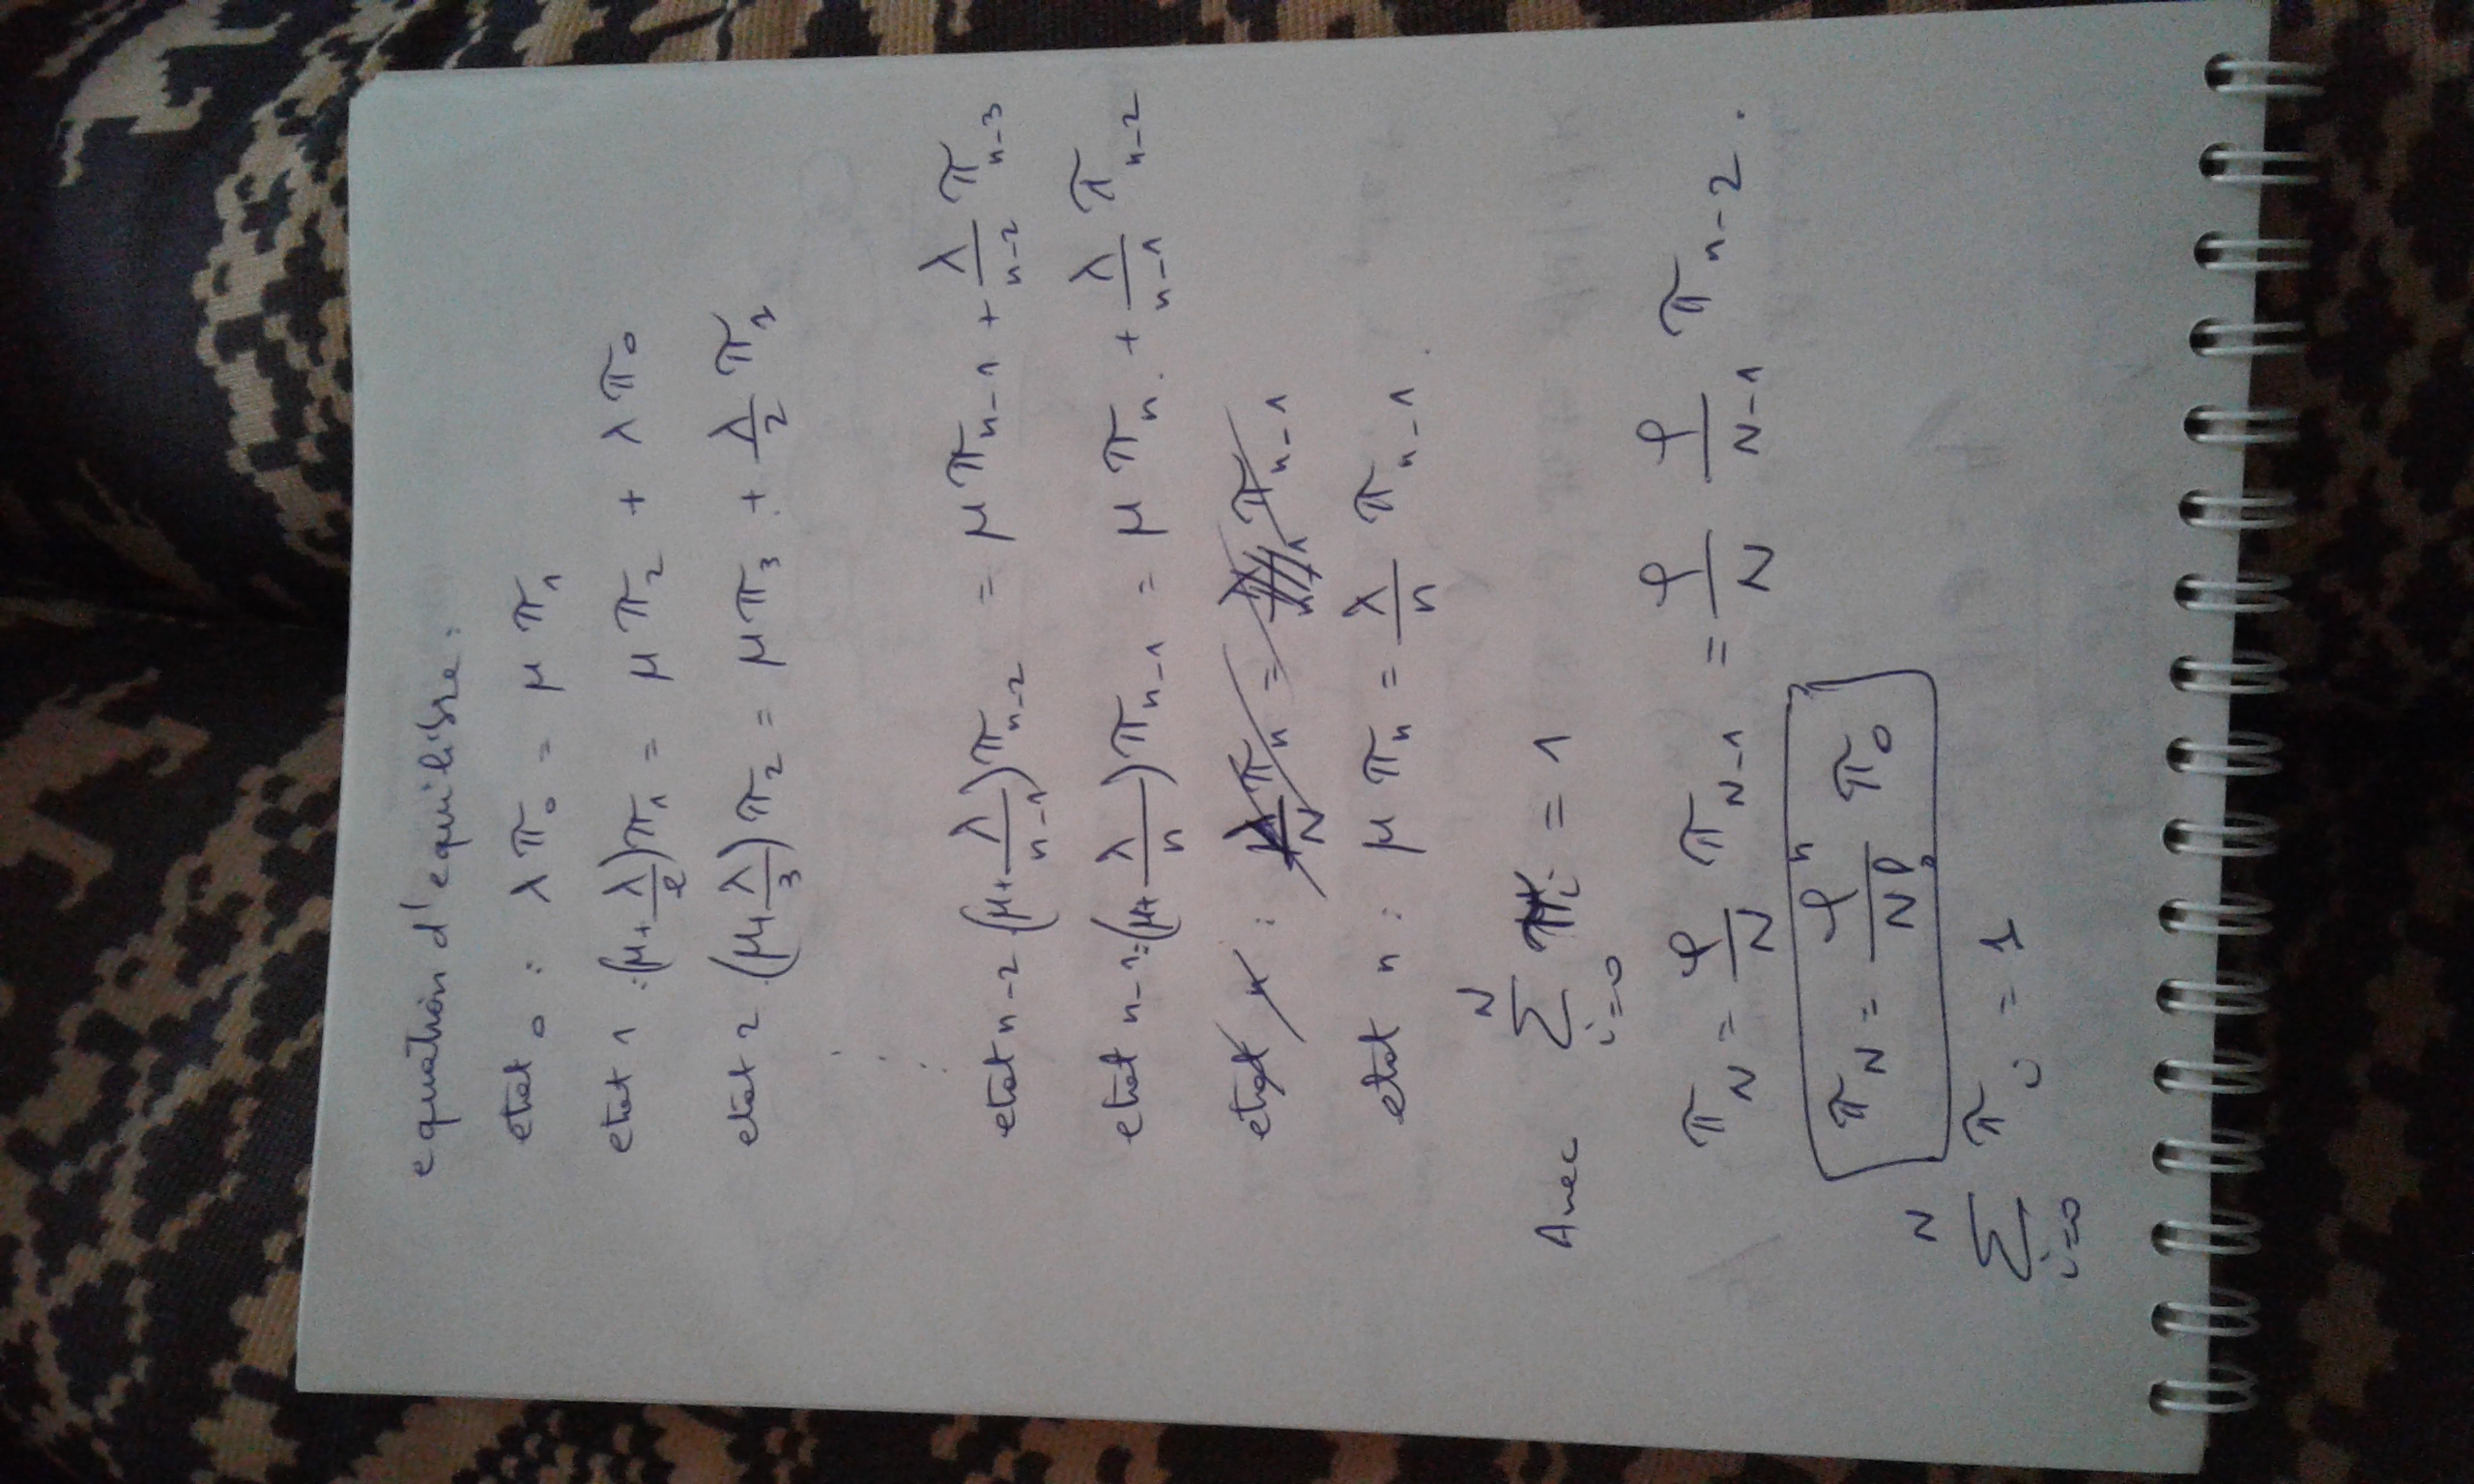 equation d'equilibre :
etat 0 : λ π₀ = μ π₁
etat 1 : (μ + λ/2) π₁ = μ π₂ + λ π₀
etat 2 (μ + λ/3) π₂ = μ π₃ + λ/2 π₁
.
.
.
etat n-2 (μ + λ/(n-1)) π_{n-2} = μ π_{n-1} + λ/(n-2) π_{n-3}
etat n-1 : (μ + λ/n) π_{n-1} = μ π_n + λ/(n-1) π_{n-2}
etat n : π_n = π_{n-1}
etat n : μ π_n = λ/n π_{n-1}
Avec ∑_{i=0}^{N} π_i = 1
π_N = ρ/N π_{N-1} = ρ/N ρ/(N-1) π_{n-2} .
π_N = ρ^n/N! π₀
∑_{i=0}^{N} π_i = 1